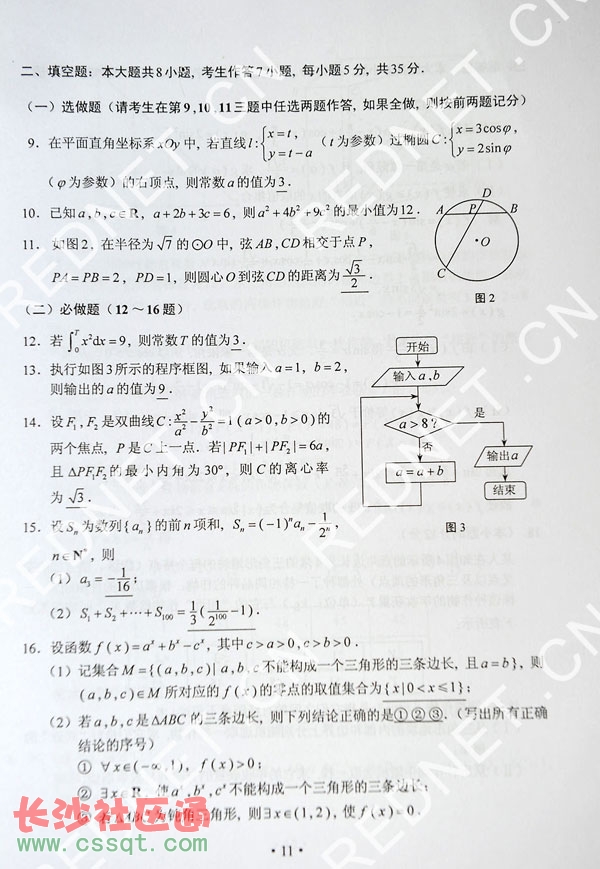 二、填空题：本大题共8小题，考生作答7小题，每小题5分，共35分．
（一）选做题（请考生在第9，10，11三题中任选两题作答，如果全做，则按前两题记分）
9．在平面直角坐标系xOy中，若直线l：{x=t, y=t-a （t为参数）过椭圆C：{x=3cosφ, y=2sinφ
（φ为参数）的右顶点，则常数a的值为3．
10．已知a,b,c∈R，a+2b+3c=6，则a²+4b²+9c²的最小值为12．
11．如图2，在半径为√7的⊙O中，弦AB,CD相交于点P，
PA=PB=2，PD=1，则圆心O到弦CD的距离为√3/2．
D
A P B
O
C
图2
（二）必做题（12～16题）
12．若∫₀ᵀx²dx=9，则常数T的值为3．
13．执行如图3所示的程序框图，如果输入a=1，b=2，
则输出的a的值为9．
14．设F₁,F₂是双曲线C：x²/a²-y²/b²=1(a>0,b>0)的
两个焦点，P是C上一点．若|PF₁|+|PF₂|=6a，
且△PF₁F₂的最小内角为30°，则C的离心率
为√3．
开始
输入a,b
a>8?
是
否
a=a+b
输出a
结束
图3
15．设Sₙ为数列{aₙ}的前n项和，Sₙ=(-1)ⁿaₙ-1/2ⁿ，
n∈N*，则
（1）a₃=-1/16；
（2）S₁+S₂+⋯+S₁₀₀=1/3(1/2¹⁰⁰-1)．
16．设函数f(x)=aˣ+bˣ-cˣ，其中c>a>0,c>b>0．
（1）记集合M={(a,b,c)|a,b,c不能构成一个三角形的三条边长，且a=b}，则
(a,b,c)∈M所对应的f(x)的零点的取值集合为{x|0<x≤1}；
（2）若a,b,c是△ABC的三条边长，则下列结论正确的是①②③．（写出所有正确
结论的序号）
①∀x∈(-∞,1)，f(x)>0；
②∃x∈R，使aˣ,bˣ,cˣ不能构成一个三角形的三条边长；
③若△ABC为钝角三角形，则∃x∈(1,2)，使f(x)=0．
·11·
长沙社区通
www.cssqt.com
REDNET.CN